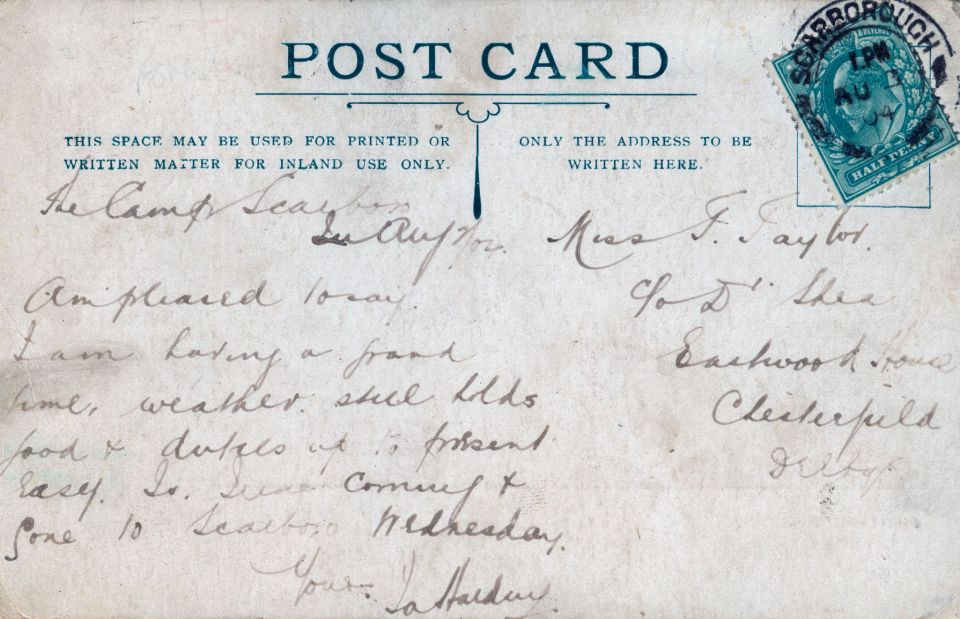 POST CARD
THIS SPACE MAY BE USED FOR PRINTED OR
WRITTEN MATTER FOR INLAND USE ONLY.
ONLY THE ADDRESS TO BE
WRITTEN HERE.
SCARBOROUGH
1. PM
AU
04
HALF PENNY
The Camp Scarboro
Miss F. Taylor.
c/o Dr Shea
Eastwood House
Chesterfield
Derbys
Am pleased to say.
I am having a grand
time, weather still holds
good & duties up to present
Easy. Is Coming &
Gone to Scarboro Wednesday.
Yours